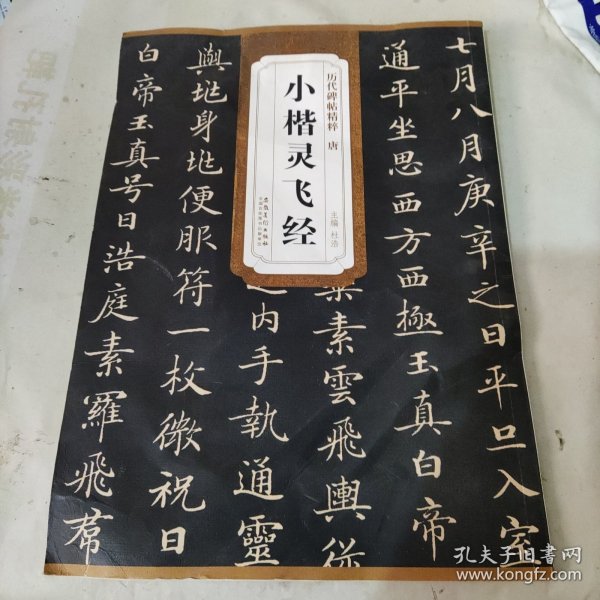 历代碑帖精粹 唐
小楷灵飞经
主编 杜浩
安徽美术出版社
七月八月庚辛之日平旦入室
通平坐思西方西極玉真白帝
素雲飛輿從
之内手執通靈
與𡉏身𡉏便服符一枚微祝日
白帝玉真号日浩庭素羅飛帬
孔夫子旧书网
www.kongfz.com